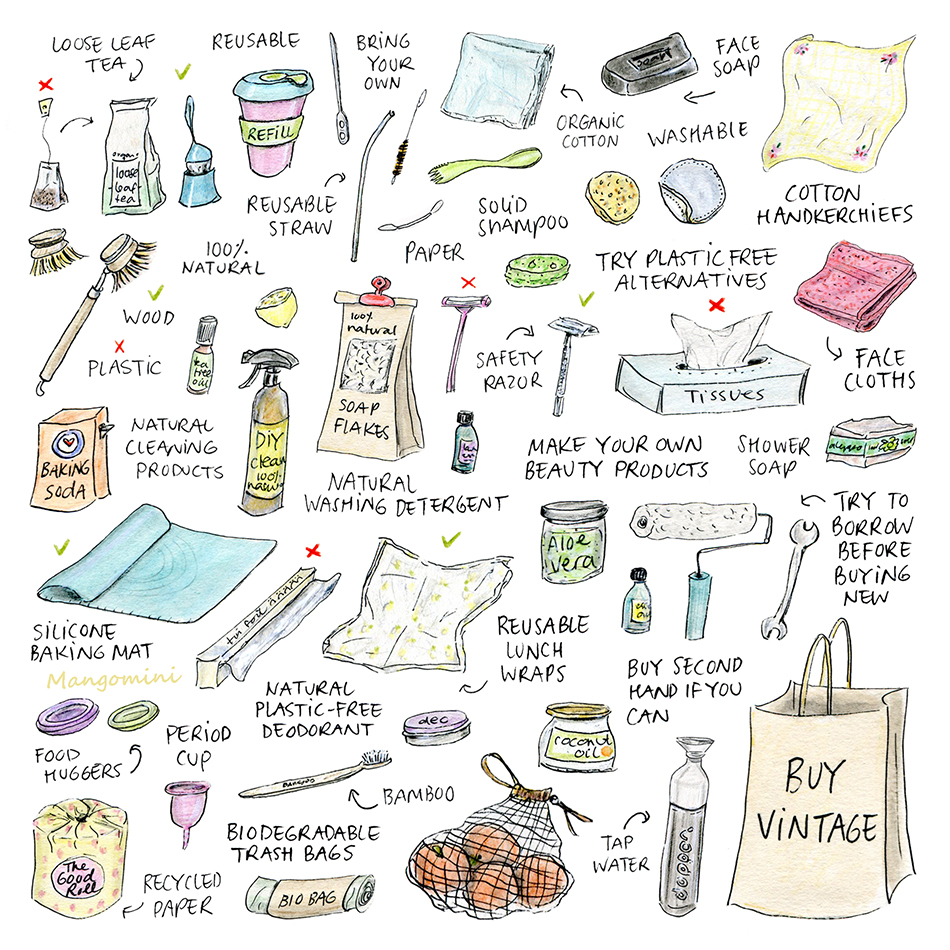 LOOSE LEAF
TEA
organic
loose
leaf
tea
REUSABLE
REFILL
BRING
YOUR
OWN
REUSABLE
STRAW
PAPER
ORGANIC
COTTON
FACE
SOAP
WASHABLE
COTTON
HANDKERCHIEFS
SOLID
SHAMPOO
100%
NATURAL
WOOD
PLASTIC
tea
tree
oil
100%
natural
SOAP
FLAKES
SAFETY
RAZOR
TRY PLASTIC FREE
ALTERNATIVES
TISSUES
FACE
CLOTHS
BAKING
SODA
NATURAL
CLEANING
PRODUCTS
DIY
Clean
100%
NATURAL
WASHING DETERGENT
MAKE YOUR OWN
BEAUTY PRODUCTS
SHOWER
SOAP
Aloe
vera
TRY TO
BORROW
BEFORE
BUYING
NEW
SILICONE
BAKING MAT
Mangomini
REUSABLE
LUNCH
WRAPS
BUY SECOND
HAND IF YOU
CAN
NATURAL
PLASTIC-FREE
DEODORANT
deo
coconut
oil
FOOD
HUGGERS
PERIOD
CUP
BAMBOO
BIODEGRADABLE
TRASH BAGS
BIO BAG
The
Good
Roll
RECYCLED
PAPER
TAP
WATER
dopper
BUY
VINTAGE